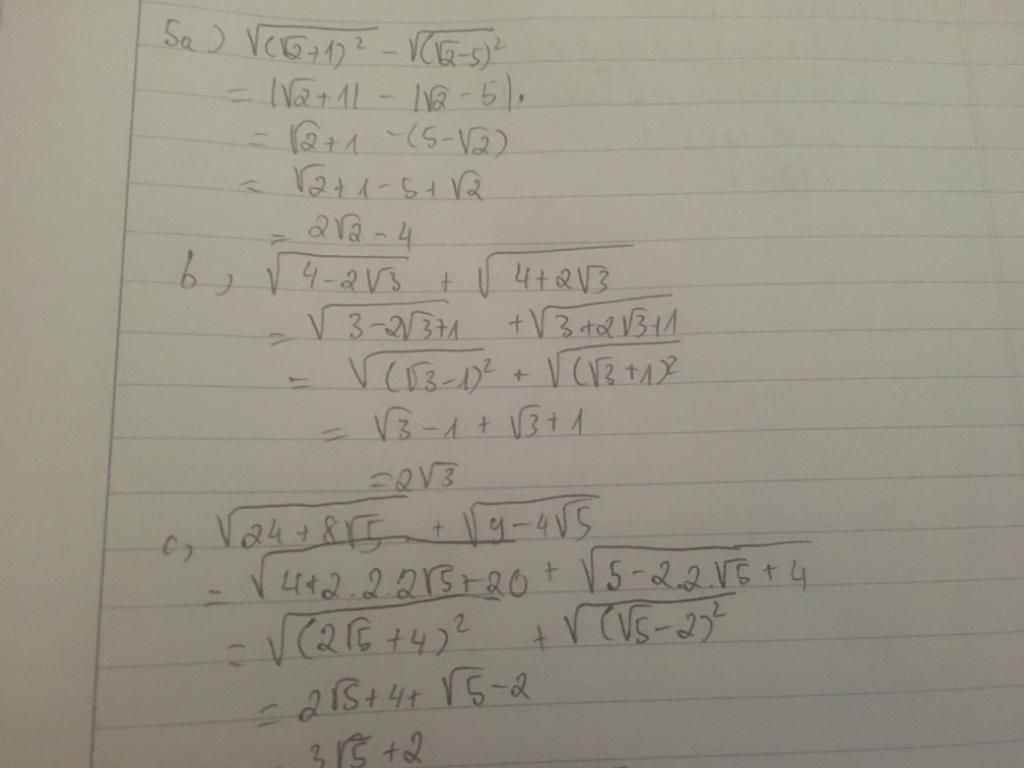 5a) √(√2+1)² - √(√2-5)²
= |√2+1| - |√2-5|.
= √2+1 -(5-√2)
= √2+1-5+√2
= 2√2-4
b, √4-2√3 + √4+2√3
= √3-2√3+1 + √3+2√3+1
= √(√3-1)² + √(√3+1)²
= √3-1+√3+1
=2√3
c, √24+8√5 + √9-4√5
= √4+2.2.2√5+20 + √5-2.2.√5+4
= √(2√5+4)² + √(√5-2)²
= 2√5+4+√5-2
3√5+2